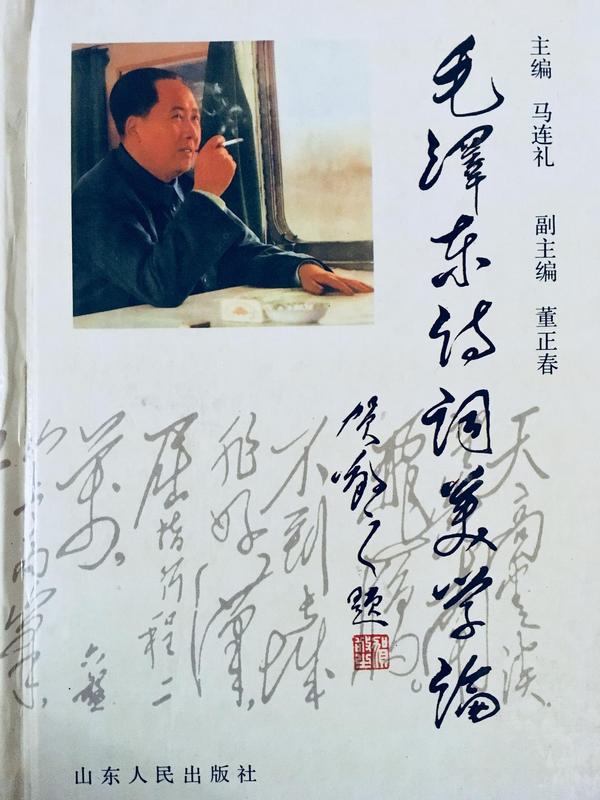 主编 马连礼 副主编 董正春
毛澤东诗词美学论
贺敬之题
天高雲淡
不到长城
非好漢
屈指行程二
萬
六盘
山东人民出版社